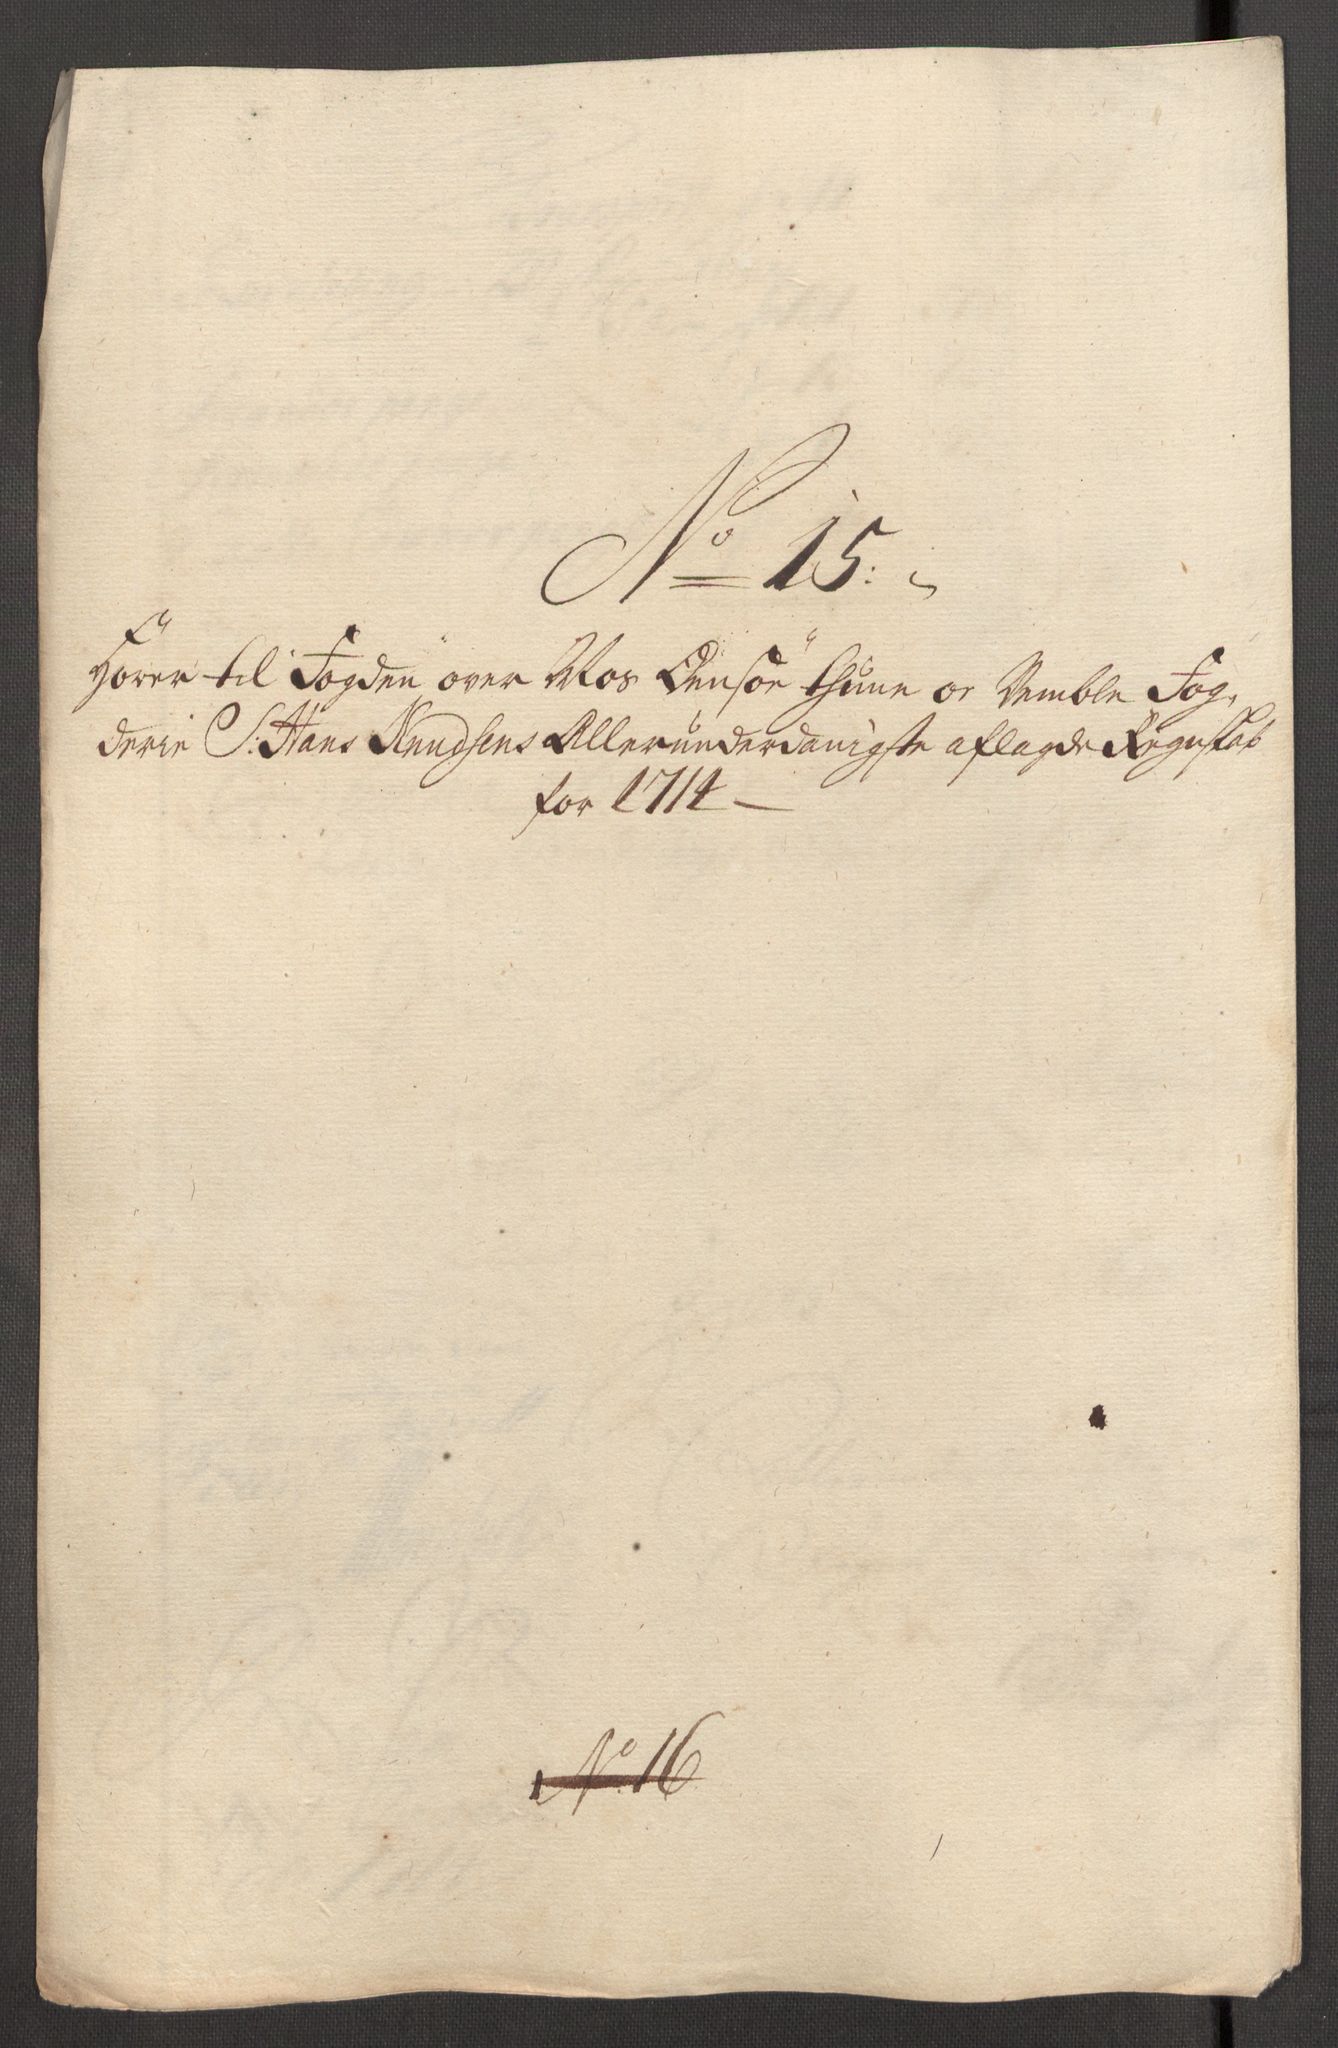 No 15:
Hörer til Fogden over Mos Onsöe thune oc Vemble Fog,
derie S: Hans Knudsens Allerunderdanigste aflagde Regnskab
for 1714
No 16